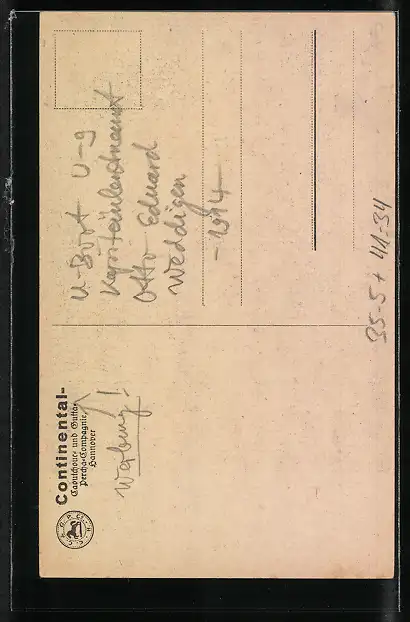 Continental-
Caoutchouc- und Gutta-
Percha-Compagnie
Hannover
Werbung!
U-Boot U-9
Kapitänleutnannt
Otto Eduard
Weddigen
- 1914 -
35-5 + 41:34